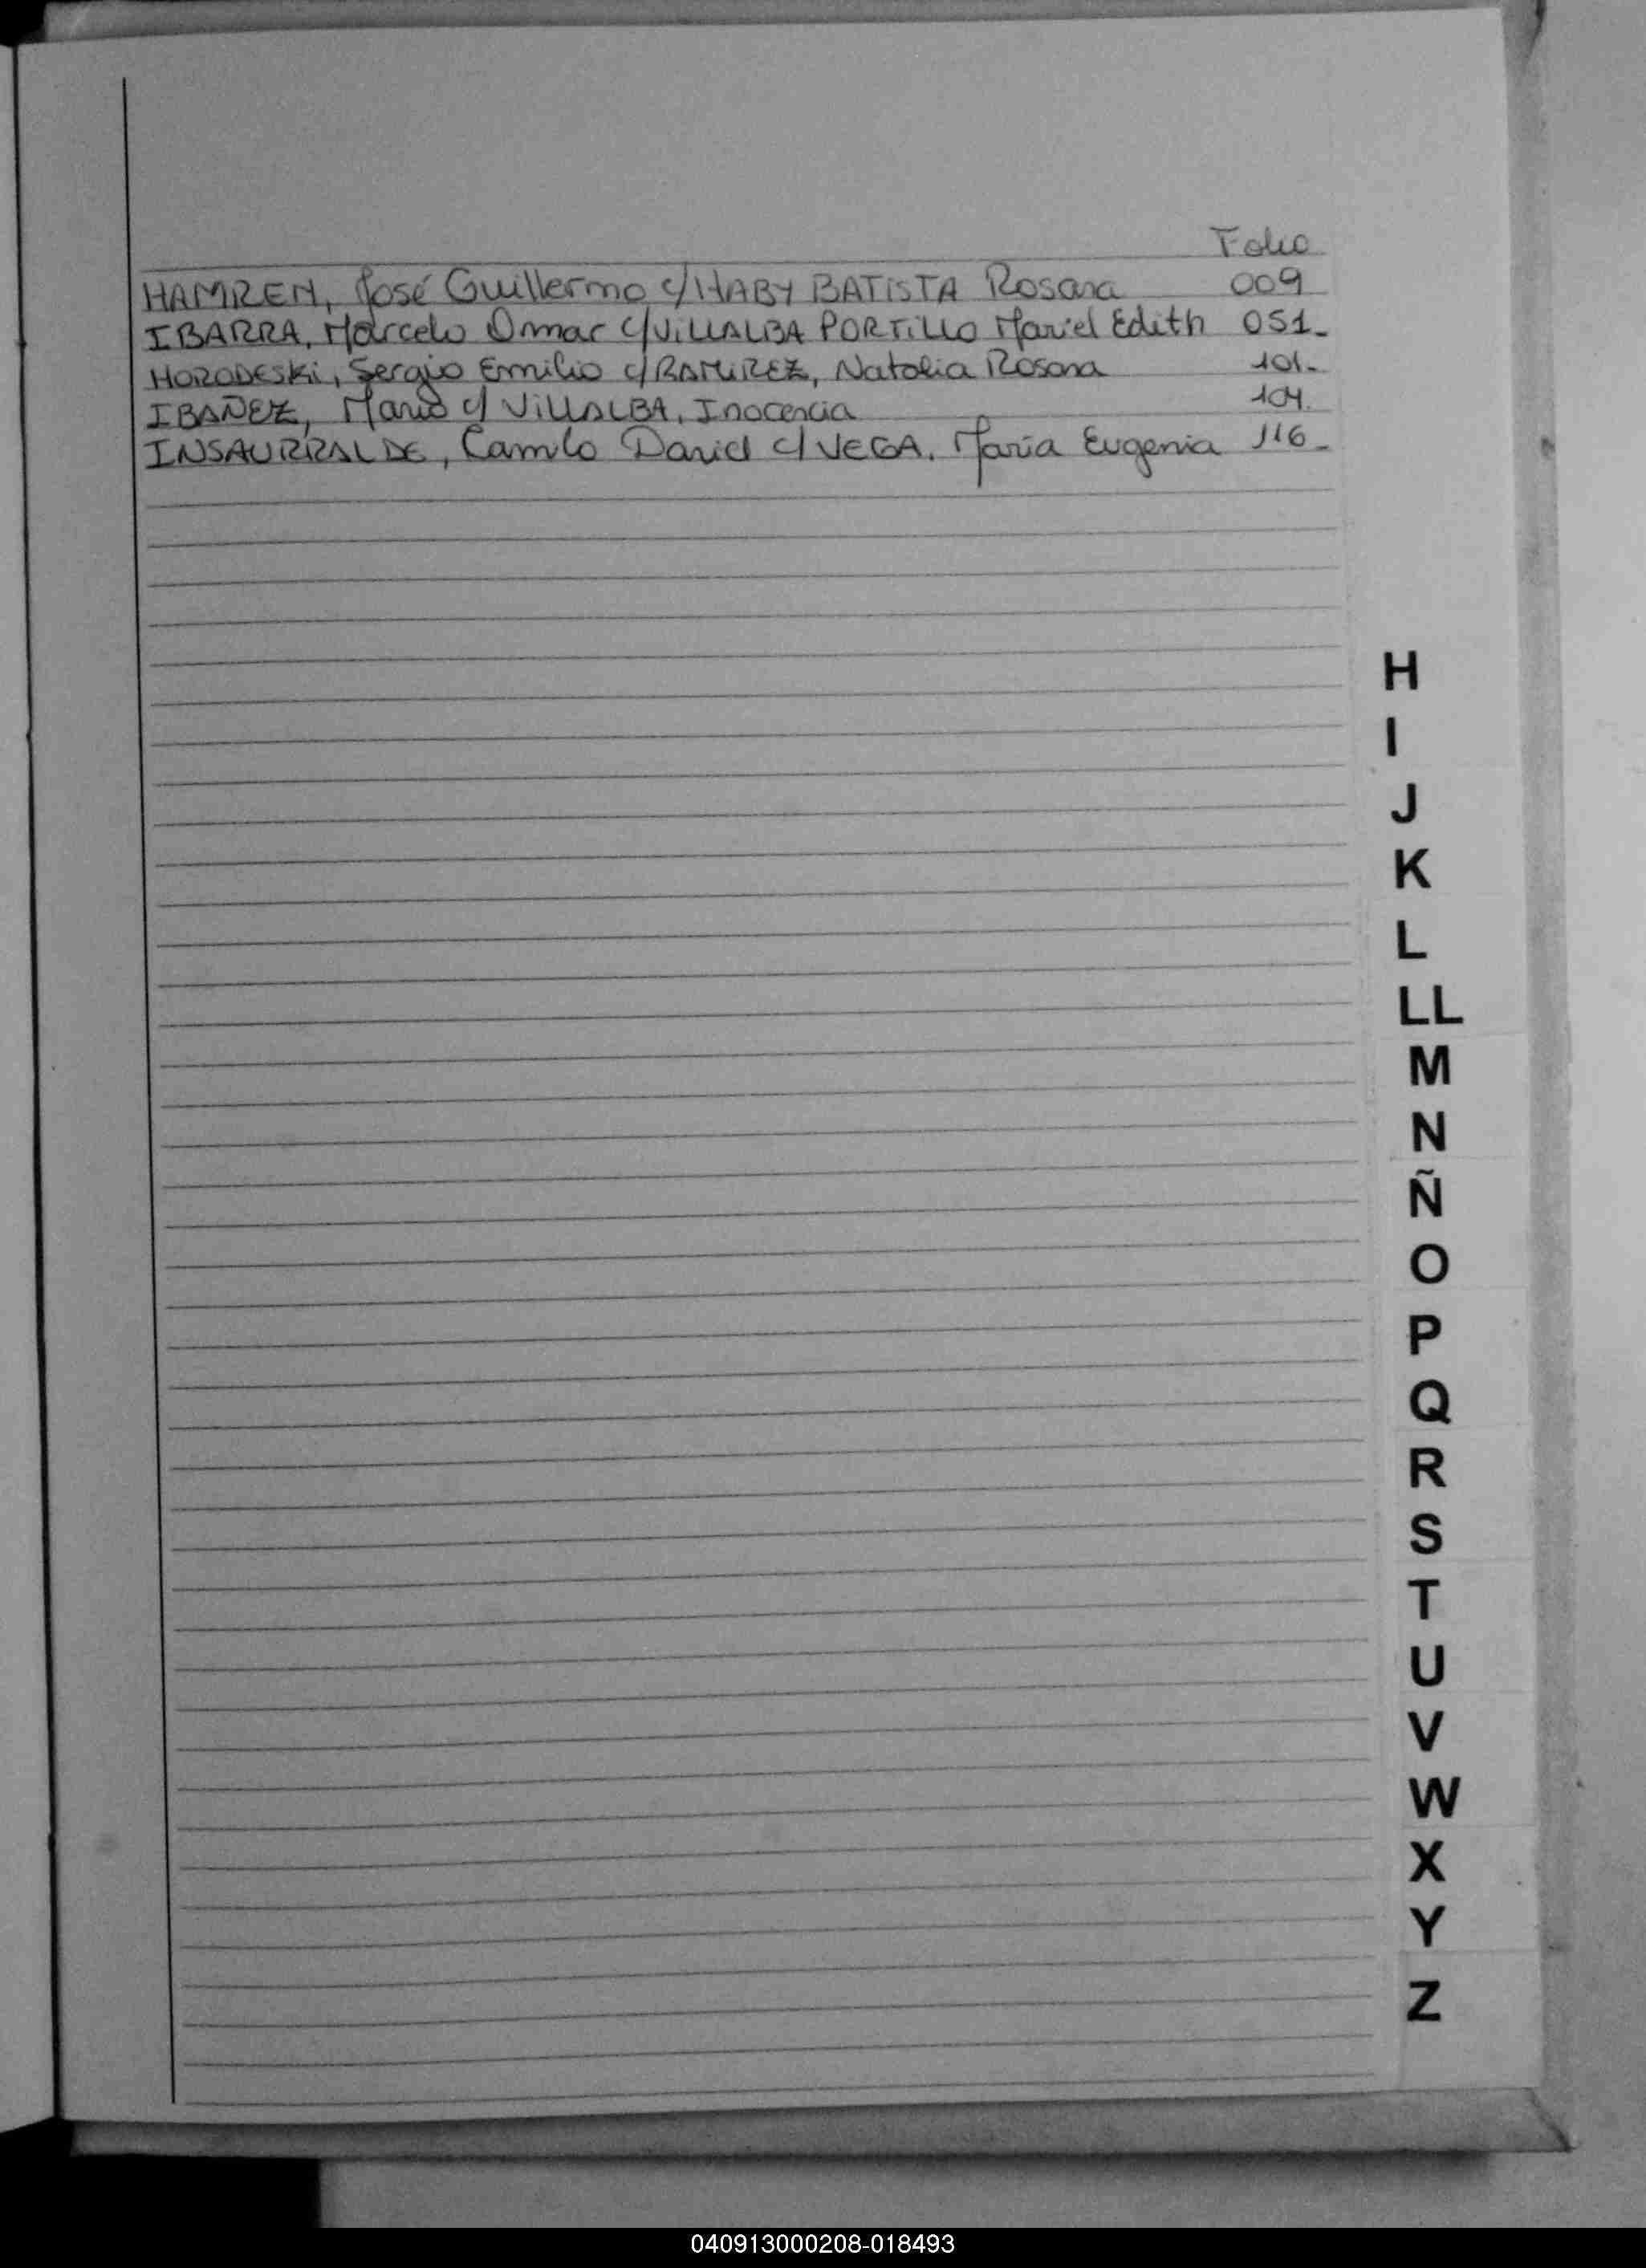 Folio
HAMREN, José Guillermo c/HABY BATISTA Rosana 009
IBARRA, Marcelo Omar c/VILLALBA PORTILLO Mariel Edith 051-
HORODESKi, Sergio Emilio c/RAMIREZ, Natalia Rosana 101-
IBAÑEZ, Mario c/ VILLALBA, Inocencia 104.
INSAURRALDE, Camilo David c/VEGA, María Eugenia 116-
H
I
J
K
L
LL
M
N
Ñ
O
P
Q
R
S
T
U
V
W
X
Y
Z
040913000208-018493